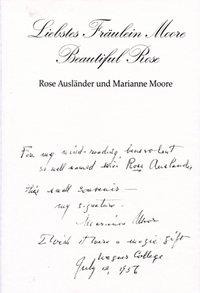 Liebstes Fräulein Moore
Beautiful Rose
Rose Ausländer und Marianne Moore
For my mind-reading benevolent
so well named Miss Rose Auslander,
this small souvenir —
my signature.
Marianne Moore
I wish it were a magic gift
Wagner College
July 12, 1956